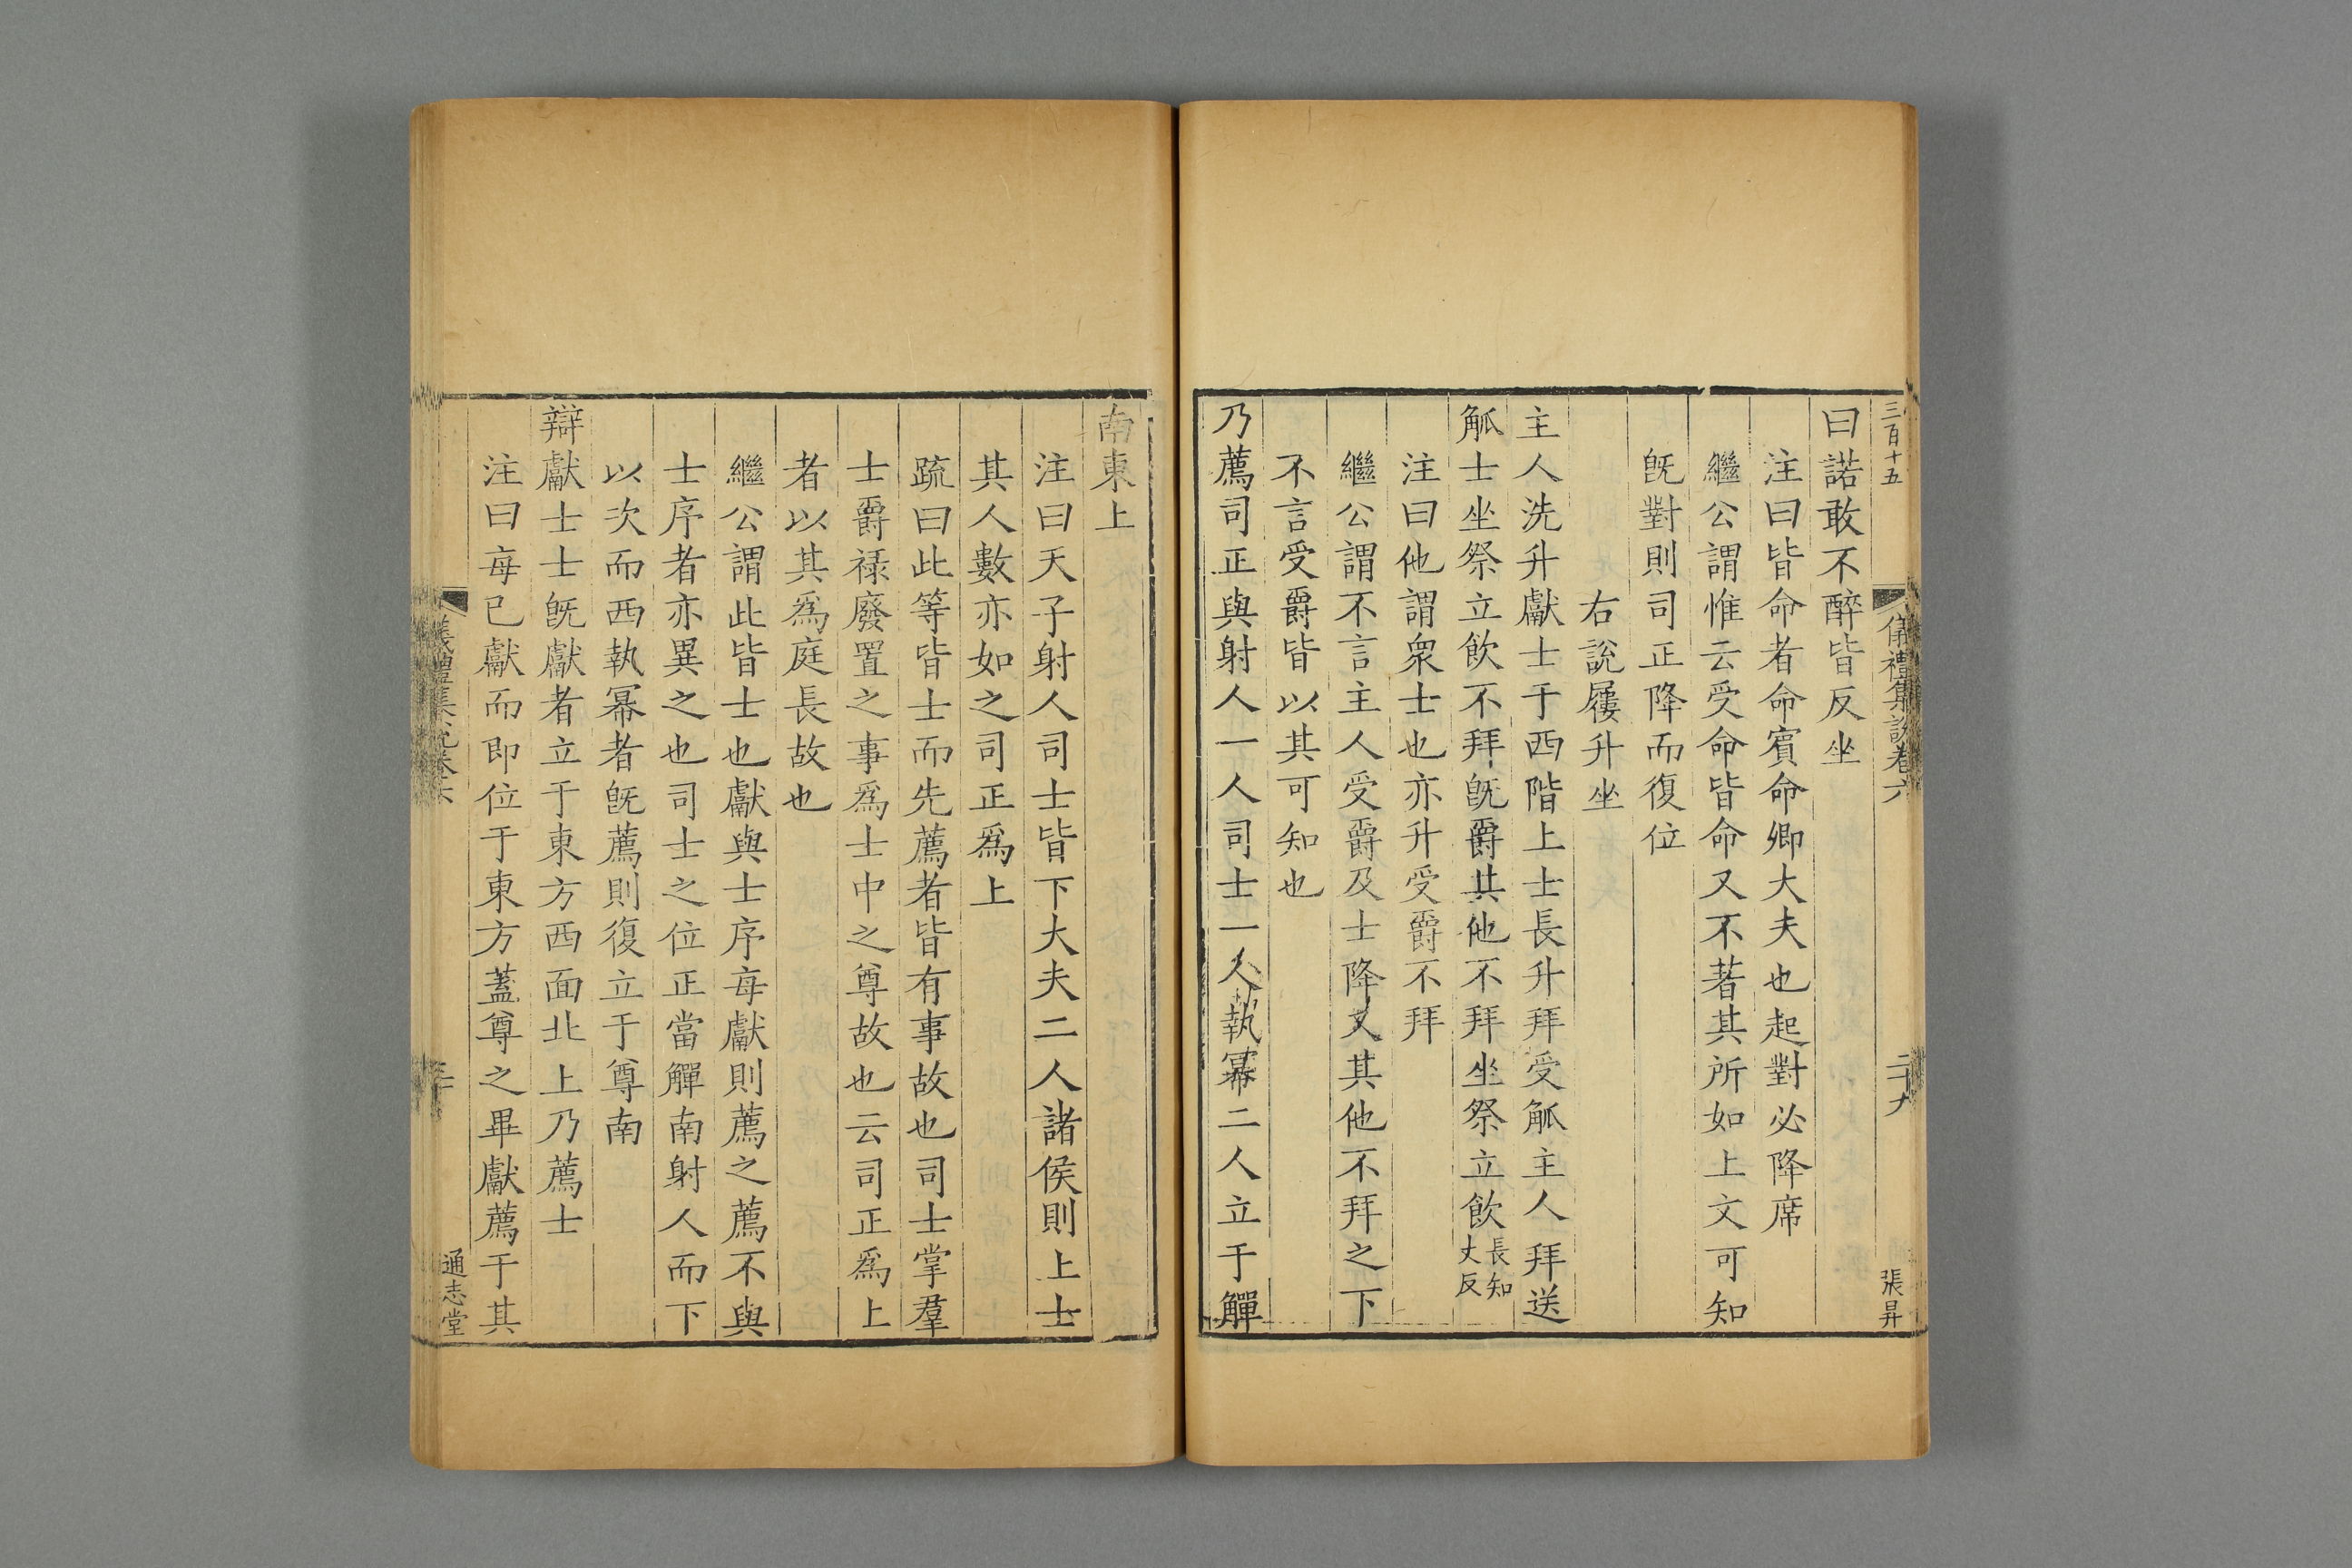 三百十五
儀禮集說卷六
二十九
張昇
曰諾敢不醉皆反坐
注曰皆命者命賓命卿大夫也起對必降席
繼公謂惟云受命皆命又不著其所如上文可知
旣對則司正降而復位
右說屨升坐
主人洗升獻士于西階上士長升拜受觚主人拜送
觚士坐祭立飲不拜旣爵其他不拜坐祭立飲長知丈反
注曰他謂衆士也亦升受爵不拜
繼公謂不言主人受爵及士降文其他不拜之下
不言受爵皆以其可知也
乃薦司正與射人一人司士一人執冪二人立于觶
南東上
注曰天子射人司士皆下大夫二人諸侯則上士
其人數亦如之司正爲上
疏曰此等皆士而先薦者皆有事故也司士掌羣
士爵祿廢置之事爲士中之尊故也云司正爲上
者以其爲庭長故也
繼公謂此皆士也獻與士序每獻則薦之薦不與
士序者亦異之也司士之位正當觶南射人而下
以次而西執冪者旣薦則復立于尊南
辯獻士士旣獻者立于東方西面北上乃薦士
注曰每已獻而即位于東方蓋尊之畢獻薦于其
儀禮集說卷六
三十
通志堂